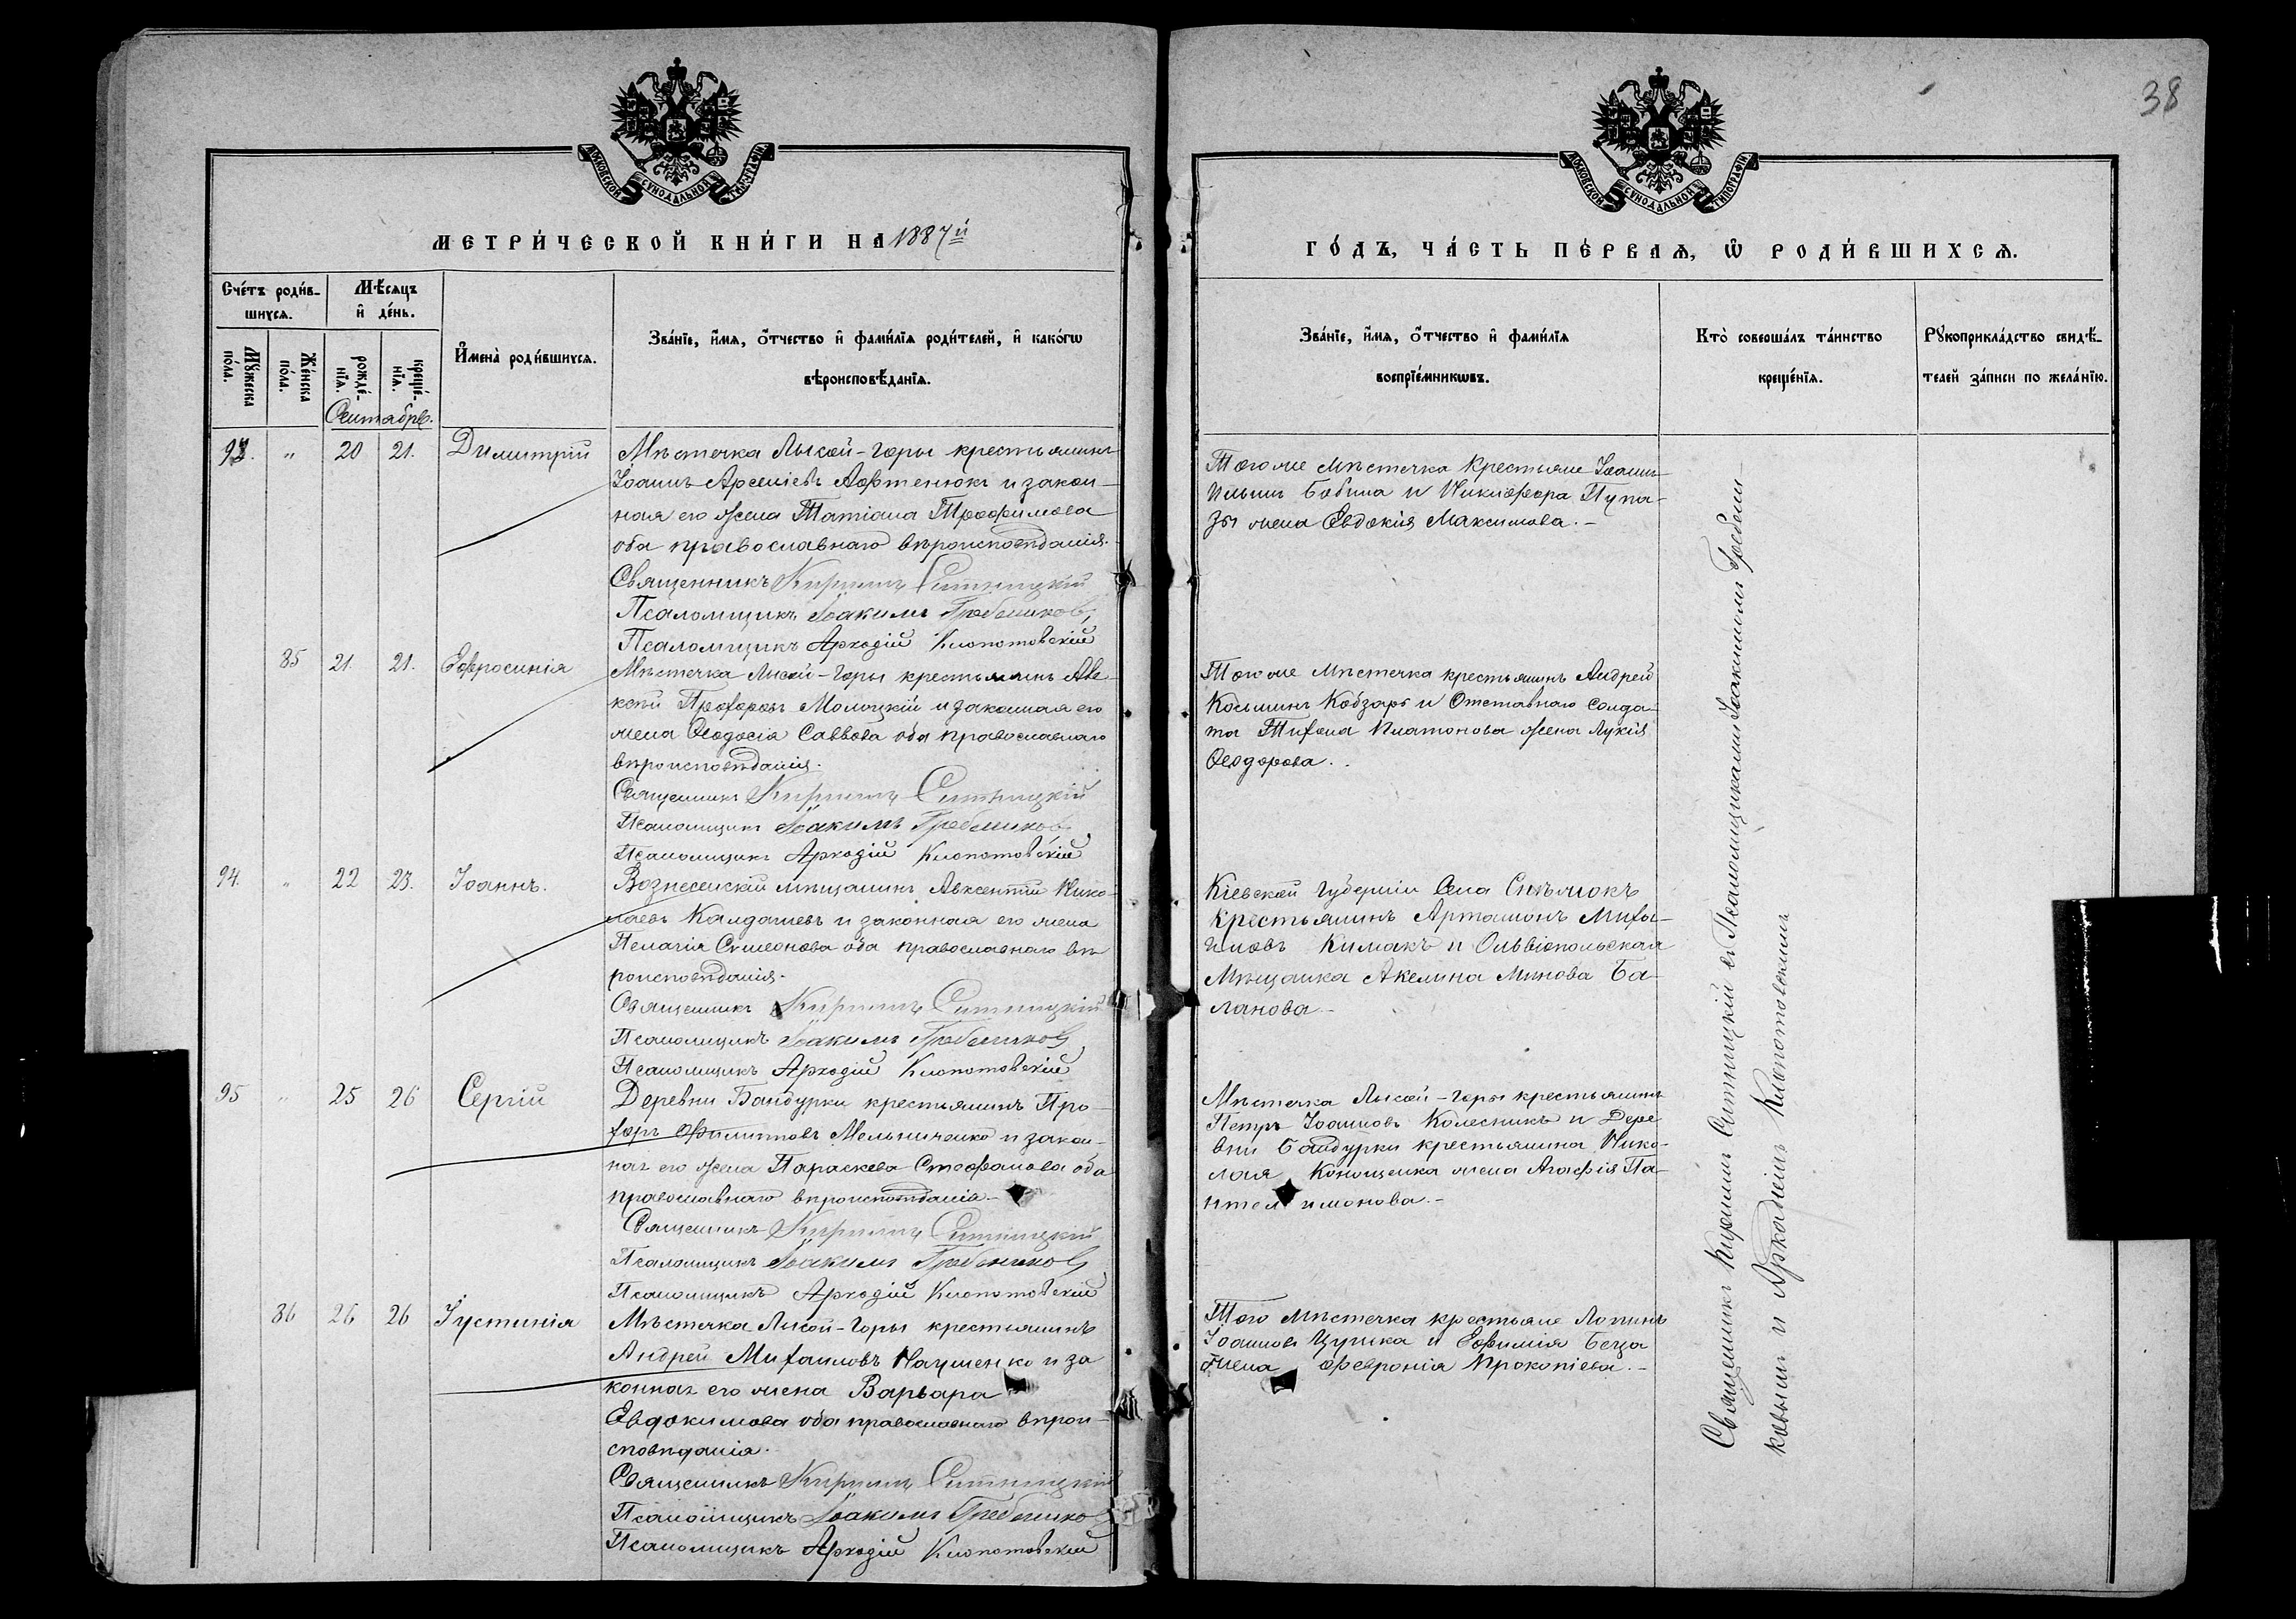 38
МОСКОВСКОЙ СѴНОДАЛЬНОЙ ТИПОГРАФІИ
МОСКОВСКОЙ СѴНОДАЛЬНОЙ ТИПОГРАФІИ
МЕТРИ́ЧЕСКОЙ КНИ́ГИ НА 1887й
ГО́ДЪ, ЧА́СТЬ ПЕ́РВАѦ, Ѡ҆ РОДИ́ВШИХСѦ.
Сче́тъ роди́в-
шихсѧ.
Мѣ́сяцъ
и҆ де́нь.
Мꙋ́жеска по́ла.
Же́нска по́ла.
рожде́-нїѧ.
креще́-нїѧ.
И҆мена̀ роди́вшихсѧ.
Зва́нїе, и҆́мѧ, ѻ҆́тчество и҆ фами́лїѧ роди́телей, и҆ како́гѡ
вѣроисповѣ́данїѧ.
Зва́нїе, и҆́мѧ, ѻ҆́тчество и҆ фами́лїѧ
воспрїе́мникѡвъ.
Кто̀ соверша́лъ та́инство
креще́нїѧ.
Рꙋкоприкла́дство свидѣ́-
телей за́писи по жела́нїю.
Сентябрь.
93. " 20 21. Димитрій
Мѣстечка Лысой-Горы крестьянинъ
Іоаннъ Арсеніевъ Афтенюкъ и закон-
ная его жена Татіана Трофимова
оба православнаго вѣроисповѣданія.
Священникъ Кириллъ Ситницкій
Псаломщикъ Іоакимъ Гребениковъ
Псаломщикъ Аркадій Клопотовскій
Тогоже мѣстечка крестьяне Іоаннъ
Ильинъ Бабина и Никифора Пупа-
зы жена Евдокія Максимова.-
85 21. 21. Ефросинія
Мѣстечка Лысой-Горы крестьянинъ Але-
ксѣй Прохоровъ Молоцкій и законная его
жена Ѳеодосія Саввова оба православнаго
вѣроисповѣданія.
Священникъ Кириллъ Ситницкій
Псаломщикъ Іоакимъ Гребениковъ
Псаломщикъ Аркадій Клопотовскій
Тогоже мѣстечка крестьянинъ Андрей
Косьминъ Кобзарь и Отставнаго солда-
та Тихона Платонова жена Лукія
Ѳеодорова.
94. " 22 23. Іоаннъ.
Вознесенскій мѣщанинъ Авксентій Нико-
лаевъ Калдашевъ и законная его жена
Пелагія Симеонова оба православнаго вѣ-
роисповѣданія.
Священникъ Кириллъ Ситницкій
Псаломщикъ Іоакимъ Гребениковъ
Псаломщикъ Аркадій Клопотовскій
Кіевской губерніи села
крестьянинъ Артамонъ Миха-
иловъ Кимакъ и Ольвіопольская
мѣщанка Акелина Минова Ба-
ланова-
95 " 25 26 Сергій
Деревни Бандурки крестьянинъ Про-
хоръ Филипповъ Мельниченко и закон-
ная его жена Параскева Стефанова оба
православнаго вѣроисповѣданія-
Священникъ Кириллъ Ситницкій
Псаломщикъ Іоакимъ Гребениковъ
Псаломщикъ Аркадій Клопотовскій
Мѣстечка Лысой-Горы крестьянинъ
Петръ Іоанновъ Колесникъ и Дере-
вни Бандурки крестьянина Нико-
лая жена Агафія Па-
нтелимонова.-
86 26 26 Іустинія
Мѣстечка Лысой-Горы крестьянинъ
Андрей Михаиловъ Науменко и за
конная его жена Варвара
Евдокимова оба православнаго вѣрои-
сповѣданія.
Священникъ Кириллъ Ситницкій
Псаломщикъ Іоакимъ Гребенико
Псаломщикъ Аркадій Клопотовскій
Того мѣстечка крестьяне Логинъ
Іоанновъ Цурика и Ефимія
жена Февронія Прокопіева.-
Священникъ Кириллъ Ситницкій съ Псаломщиками Іоакимомъ Гребени-
ковымъ и Аркадіемъ Клопотовскимъ